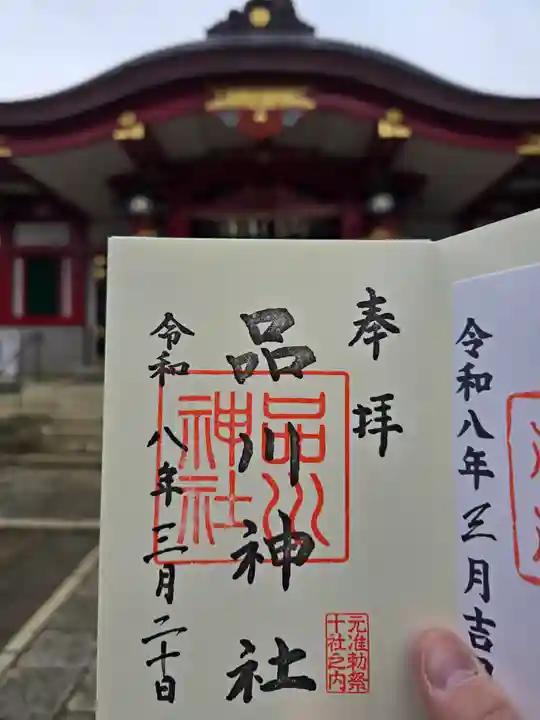 令和八年三月吉
奉拝
品川神社
品川
神社
元准勅祭
十社之内
令和八年三月二十日